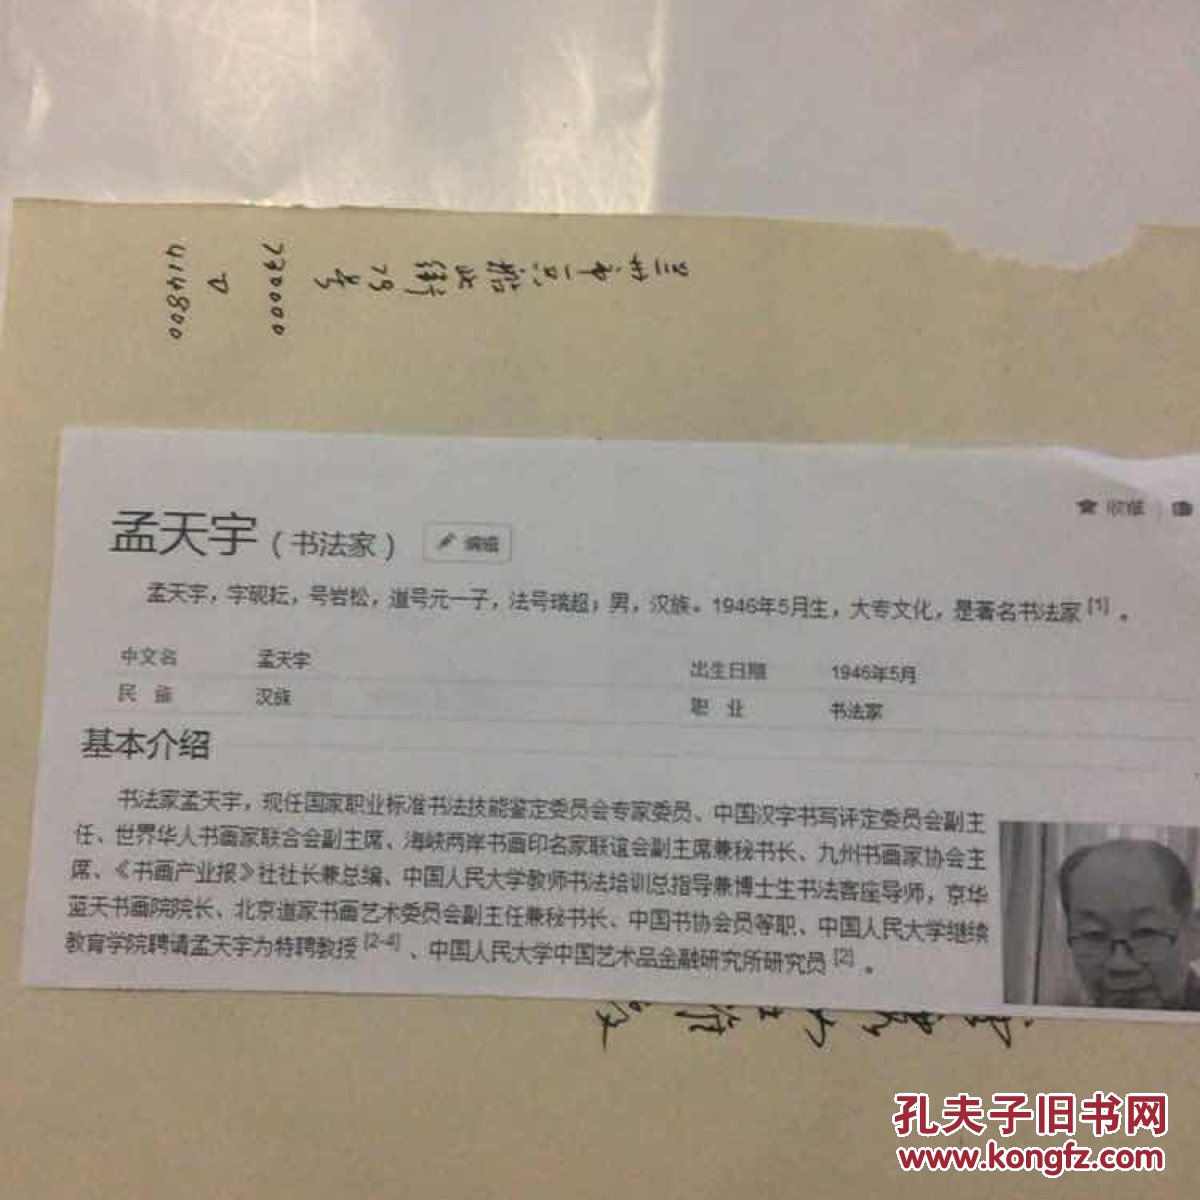 414800
孟天宇（书法家） 编辑
收藏
孟天宇，字砚耘，号岩松，道号元一子，法号瑞超；男，汉族。1946年5月生，大专文化，是著名书法家[1]。
中文名 孟天宇 出生日期 1946年5月
民族 汉族 职业 书法家
基本介绍
书法家孟天宇，现任国家职业标准书法技能鉴定委员会专家委员、中国汉字书写评定委员会副主
任、世界华人书画家联合会副主席、海峡两岸书画印名家联谊会副主席兼秘书长、九州书画家协会主
席、《书画产业报》社社长兼总编、中国人民大学教师书法培训总指导兼博士生书法客座导师，京华
蓝天书画院院长、北京道家书画艺术委员会副主任兼秘书长、中国书协会员等职、中国人民大学继续
教育学院聘请孟天宇为特聘教授[2-4]、中国人民大学中国艺术品金融研究所研究员[2]。
孔夫子旧书网
www.kongfz.com